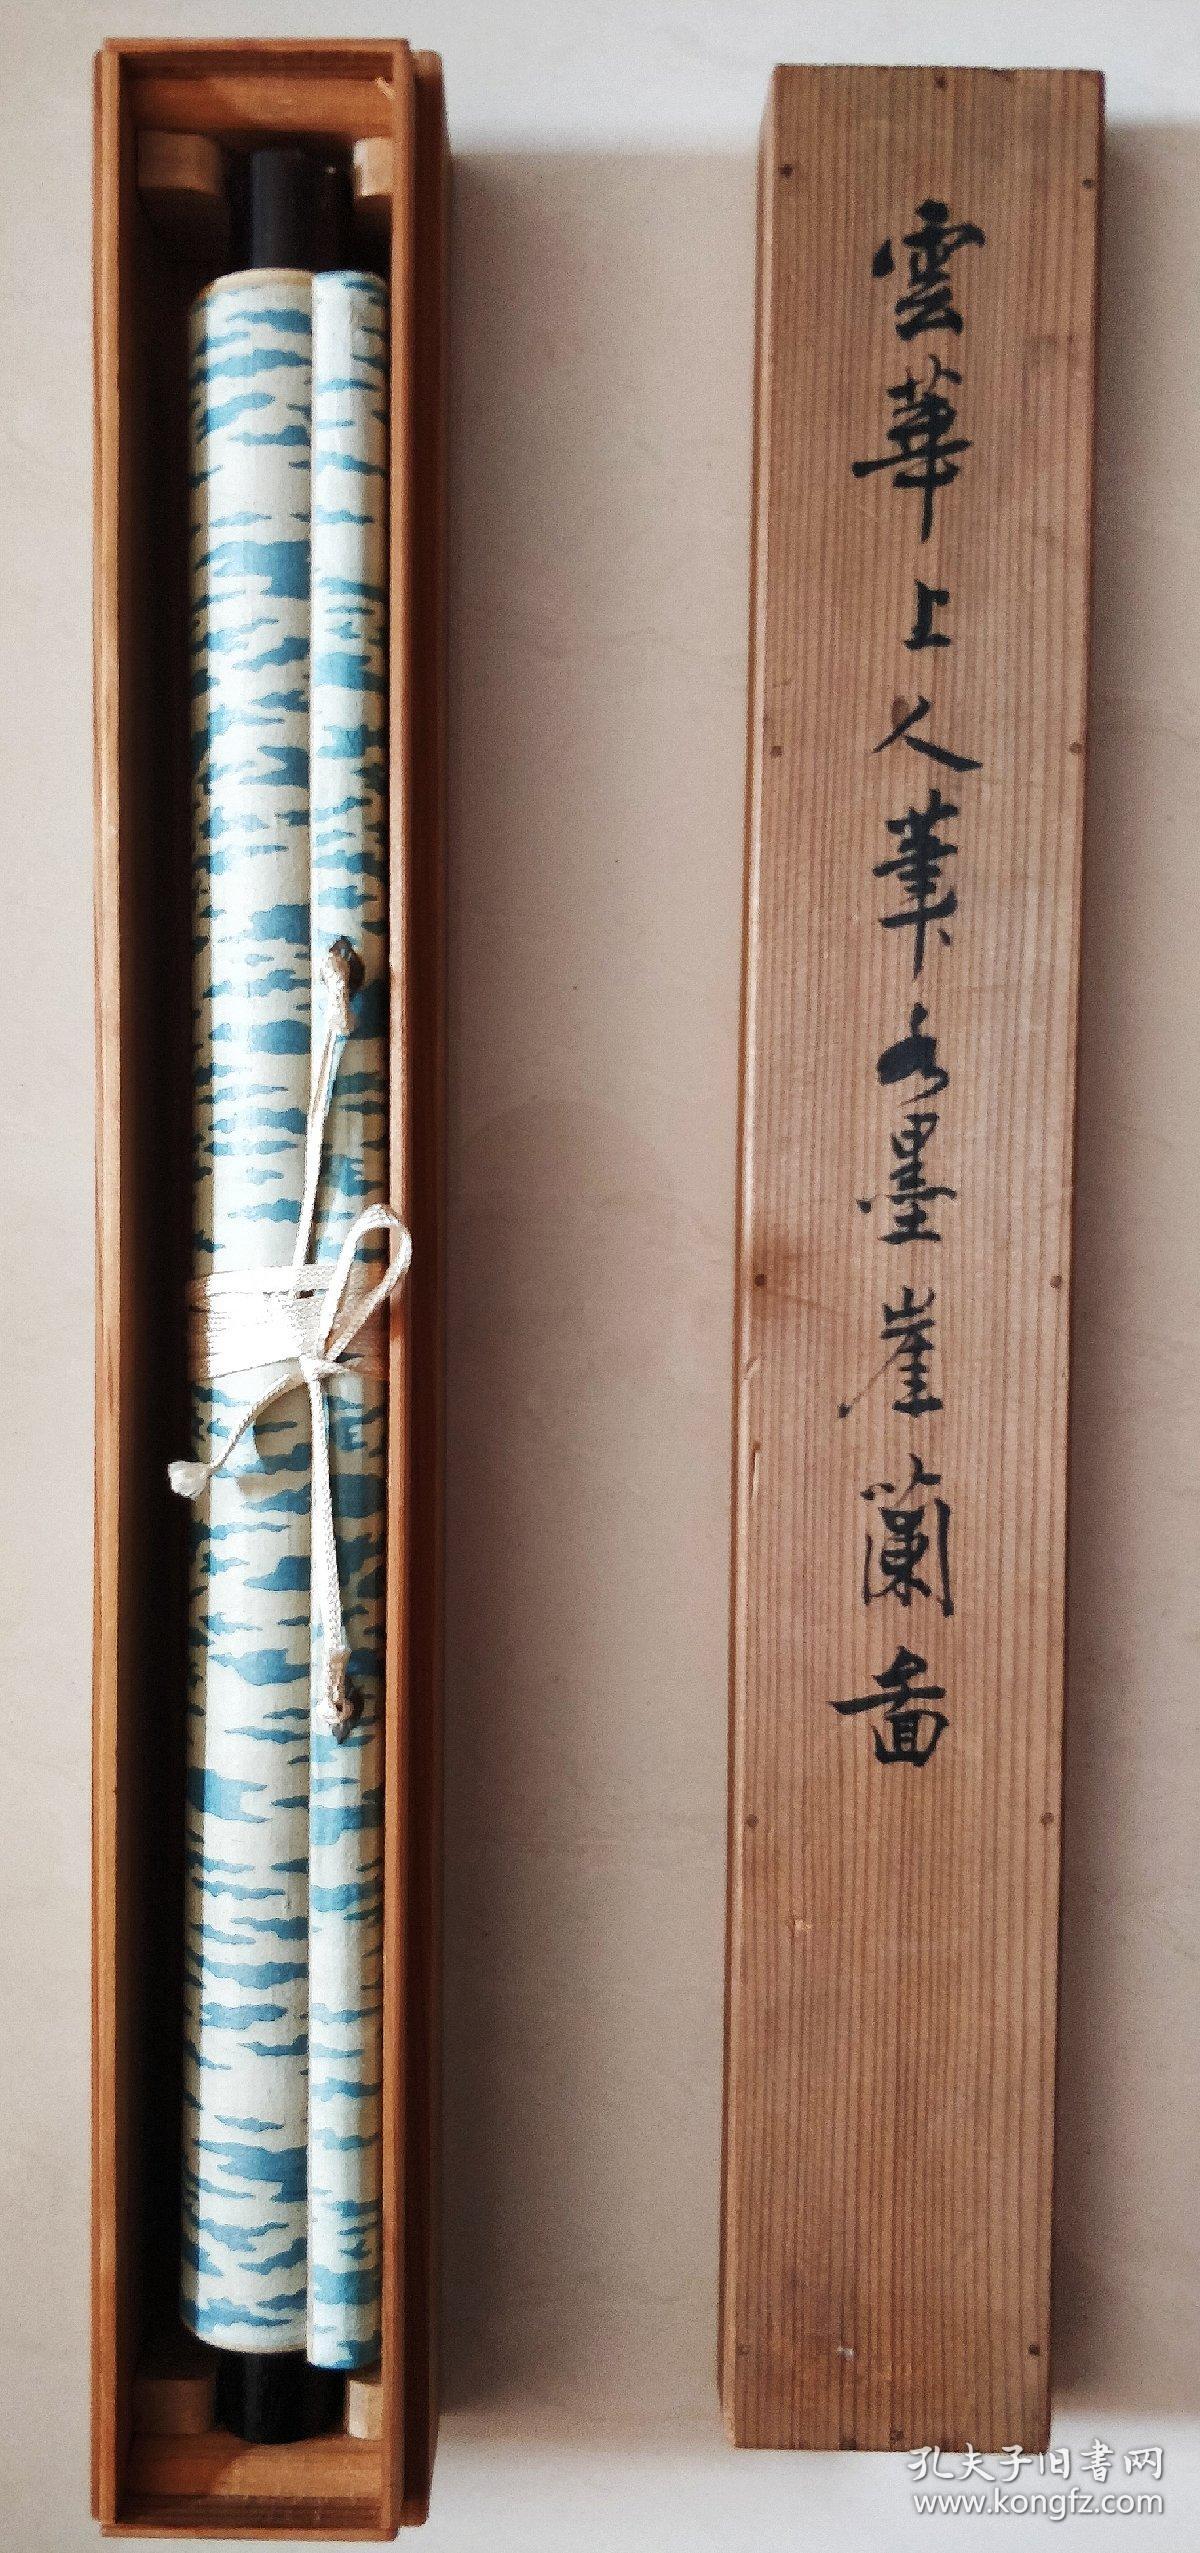 雲華上人筆水墨崖蘭畵
孔夫子旧書网
www.kongfz.com